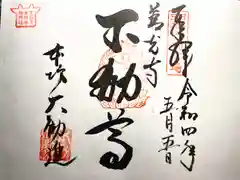 奉拝 令和四年
五月五日
善光寺
不動尊
本坊 大勧進